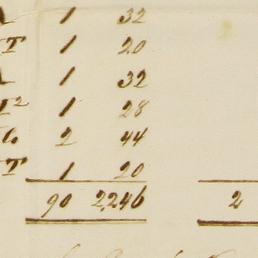 1 32
T 1 20
1 32
1 28
2 44
T 1 20
90 2246 2